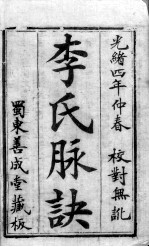 光緒四年仲春　校對無訛
李氏脉訣
蜀東善成堂藏板